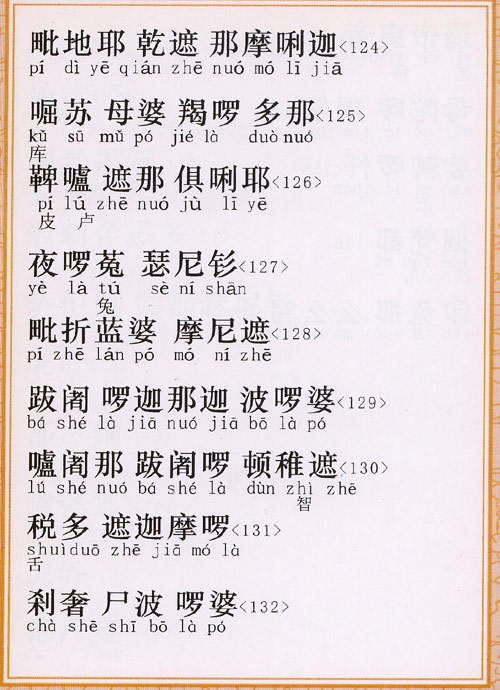 毗地耶 乾遮 那摩唎迦<124>
pí dì yē qián zhē nuó mó lī jiā
崛苏 母婆 羯啰 多那<125>
kǔ sū mǔ pó jié là duò nuó
库
鞞嚧 遮那 俱唎耶<126>
pí lú zhē nuó jù lī yē
皮 卢
夜啰菟 瑟尼钐<127>
yè là tú sè ní shān
兔
毗折蓝婆 摩尼遮<128>
pí zhē lán pó mó ní zhē
跋阇 啰迦那迦 波啰婆<129>
bá shé là jiā nuó jiā bō là pó
嚧阇那 跋阇啰 顿稚遮<130>
lú shé nuó bá shé là dùn zhì zhē
智
税多 遮迦摩啰<131>
shuìduō zhē jiā mó là
舌
刹奢 尸波 啰婆<132>
chà shē shī bō là pó